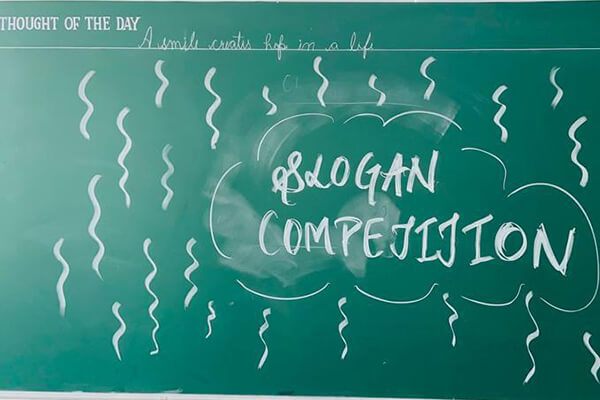 THOUGHT OF THE DAY
A smile creates hop in a life
SLOGAN
COMPETITION